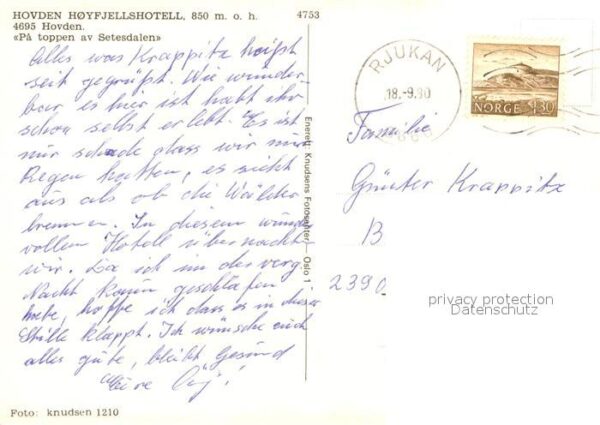 HOVDEN HØYFJELLSHOTELL, 850 m. o. h.
4695 Hovden.
«På toppen av Setesdalen»
4753
Alles was Krappitz heißt
seit gegrüßt. Wie wunder-
bar es hier ist habt ihr
schon selbst erlebt. Es ist
nur schade dass wir nur
Regen hatten, es sieht
aus als ob die Wälder
brennen. In diesem wunder
vollen Hotell übernachten
wir. Da ich in der verg.
Nacht kaum geschlafen
habe, hoffe ich dass es in dieser
Stille klappt. Ich wünsche euch
alles gute, bleibt Gesund
eure
Foto: knudsen 1210
Enerett: Knudsens Fotosenter - Oslo 1
RJUKAN
18.-9.80
NORGE 1.30
Familie
Günter Krappitz
B
2390
privacy protection
Datenschutz